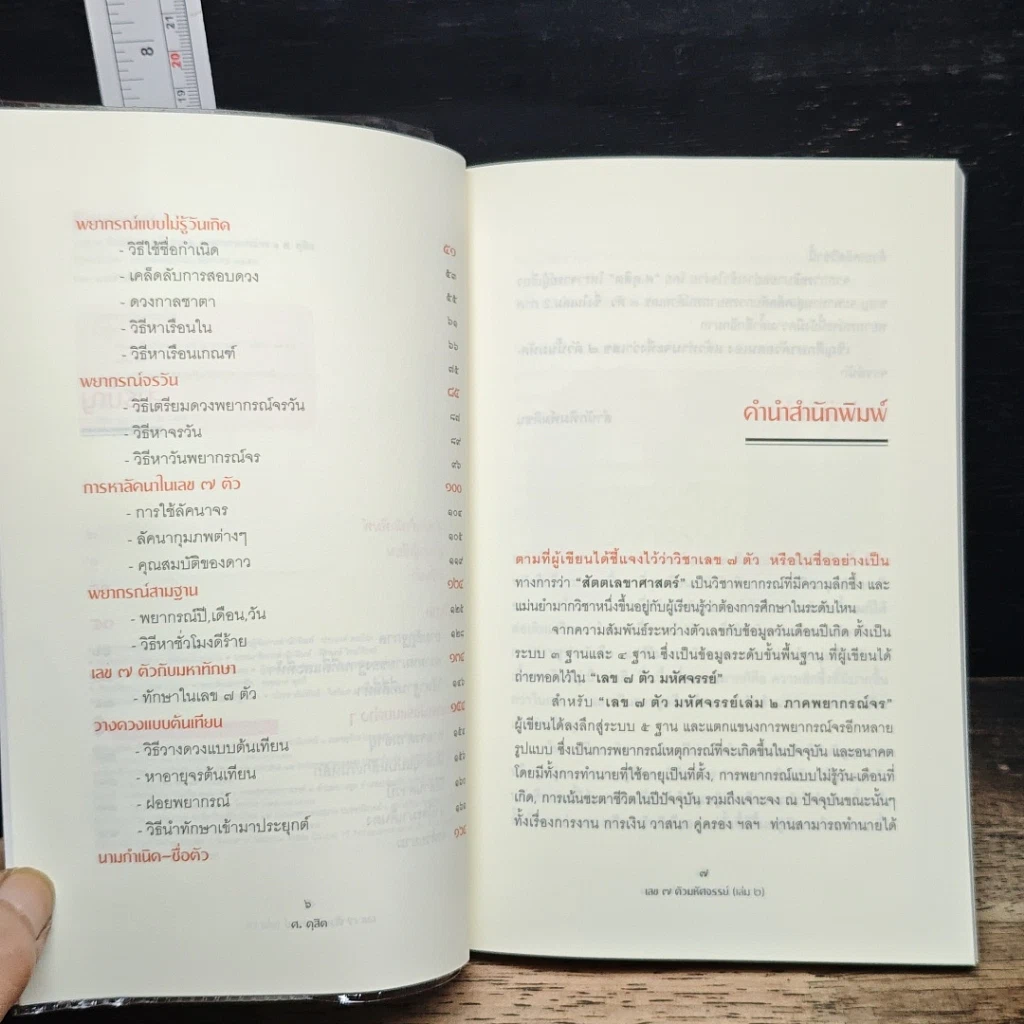 พยากรณ์แบบไม่รู้วันเกิด ๕๑
- วิธีใช้ชื่อกำเนิด ๕๓
- เคล็ดลับการสอบดวง ๕๕
- ดวงกาลชาตา ๖๑
- วิธีหาเรือนใน ๖๖
- วิธีหาเรือนเกณฑ์ ๘๕
พยากรณ์จรวัน ๘๕
- วิธีเตรียมดวงพยากรณ์จรวัน ๘๘
- วิธีหาจรวัน ๘๙
- วิธีหาวันพยากรณ์จร ๙๖
การหาลัคนาในเลข ๗ ตัว ๑๐๐
- การใช้ลัคนาจร ๑๐๔
- ลัคนากุมภพต่างๆ ๑๐๕
- คุณสมบัติของดาว ๑๑๙
พยากรณ์สามฐาน ๑๒๔
- พยากรณ์ปี,เดือน,วัน ๑๒๕
- วิธีหาชั่วโมงดีร้าย ๑๒๘
เลข ๗ ตัวกับมหาทักษา ๑๓๔
- ทักษาในเลข ๗ ตัว ๑๔๖
วางดวงแบบต้นเทียน ๑๕๔
- วิธีวางดวงแบบต้นเทียน
- หาอายุจรต้นเทียน
- ฝอยพยากรณ์
- วิธีนำทักษาเข้ามาประยุกต์
นามกำเนิด-ชื่อตัว
๖
ศ. ดุสิต
คำนำสำนักพิมพ์
ตามที่ผู้เขียนได้ชี้แจงไว้ว่าวิชาเลข ๗ ตัว หรือในชื่ออย่างเป็น
ทางการว่า "สัตตเลขาศาสตร์" เป็นวิชาพยากรณ์ที่มีความลึกซึ้ง และ
แม่นยำมากวิชาหนึ่งขึ้นอยู่กับผู้เรียนรู้ว่าต้องการศึกษาในระดับไหน
จากความสัมพันธ์ระหว่างตัวเลขกับข้อมูลวันเดือนปีเกิด ตั้งเป็น
ระบบ ๓ ฐานและ ๔ ฐาน ซึ่งเป็นข้อมูลระดับขั้นพื้นฐาน ที่ผู้เขียนได้
ถ่ายทอดไว้ใน "เลข ๗ ตัว มหัศจรรย์"
สำหรับ "เลข ๗ ตัว มหัศจรรย์เล่ม ๒ ภาคพยากรณ์จร"
ผู้เขียนได้ลงลึกสู่ระบบ ๕ ฐาน และแตกแขนงการพยากรณ์จรอีกหลาย
รูปแบบ ซึ่งเป็นการพยากรณ์เหตุการณ์ที่จะเกิดขึ้นในปัจจุบัน และอนาคต
โดยมีทั้งการทำนายที่ใช้อายุเป็นที่ตั้ง, การพยากรณ์แบบไม่รู้วัน-เดือนที่
เกิด, การเน้นชะตาชีวิตในปีปัจจุบัน รวมถึงเจาะจง ณ ปัจจุบันขณะนั้นๆ
ทั้งเรื่องการงาน การเงิน วาสนา คู่ครอง ฯลฯ ท่านสามารถทำนายได้
๗
เลข ๗ ตัวมหัศจรรย์ (เล่ม ๒)
8
21
20
19